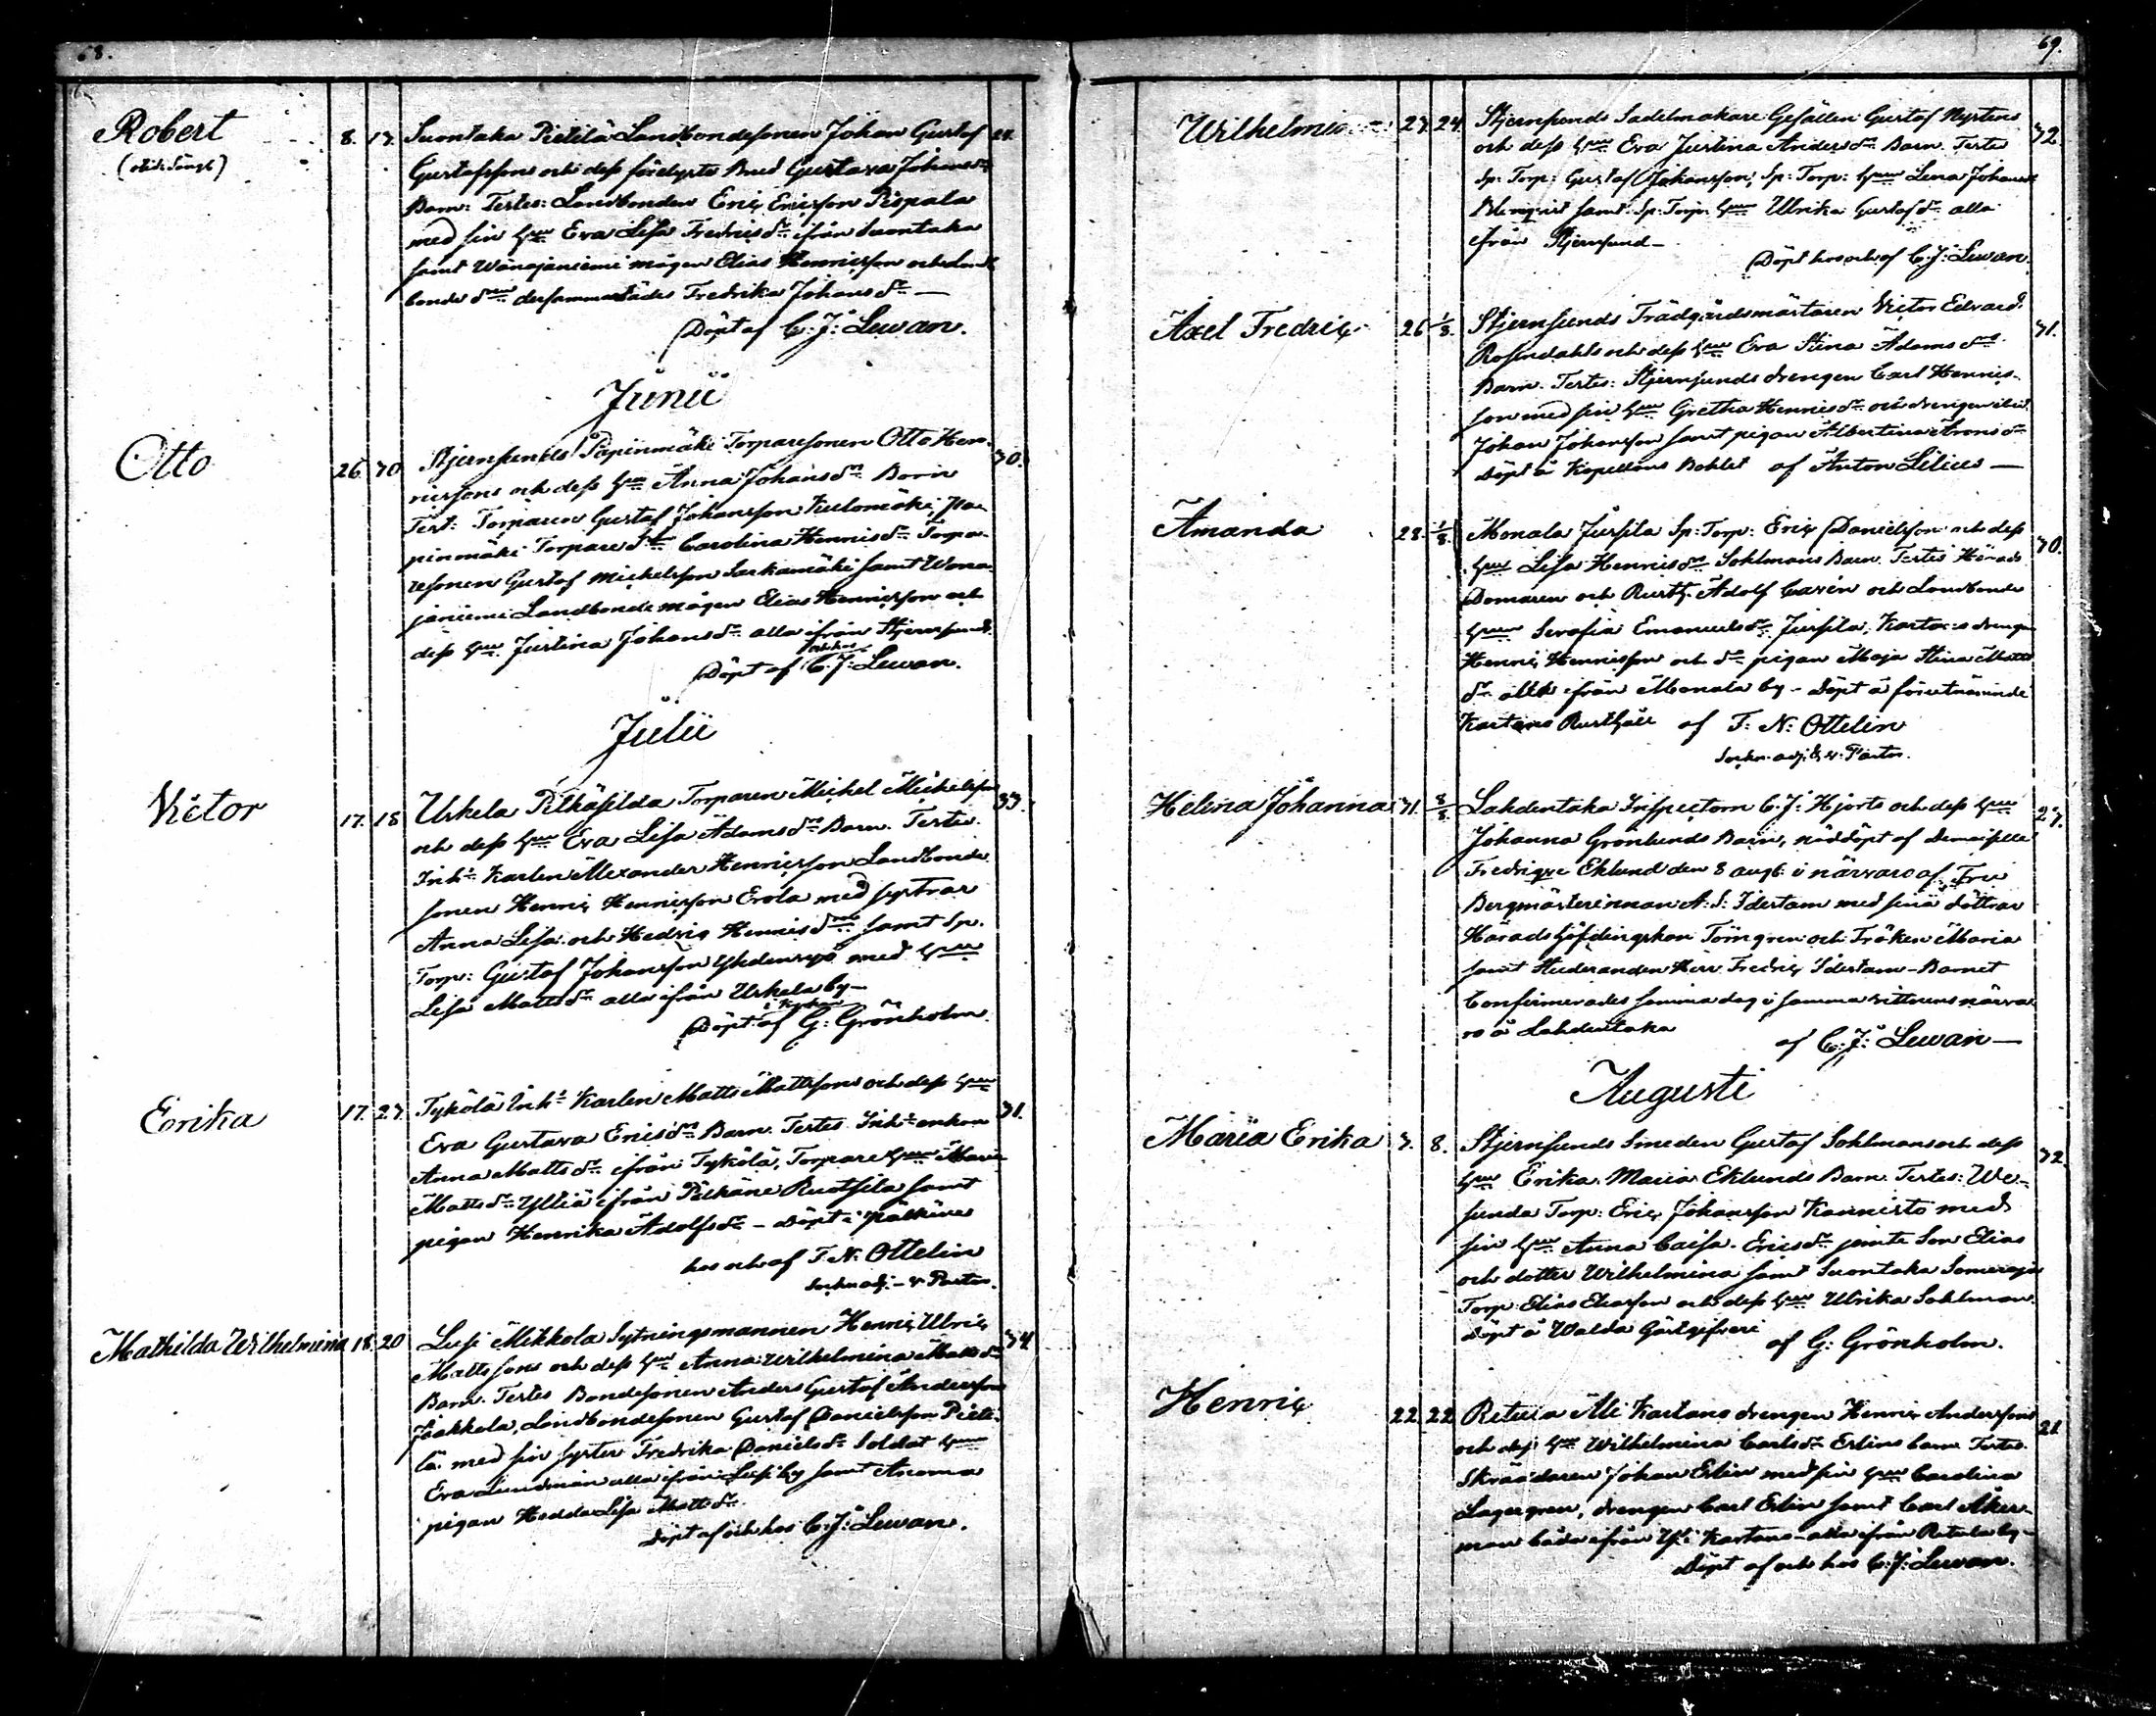 68.
Robert 8. 17. Suontaka Pietilä Landbondesonen Johan Gustaf 24.
Gustafssons och dess förelygte Brud Gustava Johans dr
Barn. Testes: Landbonden Eric Ericsson Pispala
med sin hu Eva Lisa Fredrics dr ifrån Suontaka
samt Wänäjäniemi mågen Elias Henricsson och Land-
bonde dren dersammastädes Fredrika Johans dr —
Döpt af C: J: Lewan.
Junii
Otto 26 30 Stjernsunds Papinmäki Torparesonen Otto Hen- 30.
ricssons och dess hu Anna Johans dr Barn
Test: Torparen Gustaf Johansson Kulomäki, Pa-
pinmäki Torpare dr Carolina Henrics dr Torpa-
resonen Gustaf Michelsson Sarkamäki samt Wänä-
jäniemi Landbonde mågen Elias Henricsson och
dess hu Justina Johans dr alla ifrån Stjernsund.
Döpt af och hos C: J: Lewan.
Julii
Victor 17. 18 Urkela Pitkäsilda Torparen Michel Michelsson 33.
och dess hu Eva Lisa Adams dr Barn. Testes.
Inh: Karlen Alexander Henricsson Landbonde
sonen Henric Henricsson Erola med systrar
Anna Lisa och Hedvig Henrics dr samt Sp.
Torp: Gustaf Johansson Yhdensyö med hu
Lisa Matts dr alla ifrån Urkela by —
Döpt i Kyrkan af G: Grönholm.
Erika 17. 27. Tykölä Inh: Karlen Matts Mattssons och dess hu 31.
Eva Gustava Erics dr Barn. Testes Inh: enkan
Anna Matts dr ifrån Tykölä, Torpare hu Maria
Matts dr Ylliä ifrån Pälkäne Ruotsila samt
pigan Henrika Adolfs dr — Döpt i Pälkäne
hos och af F. N. Ottelin
Sockne adj. — v. Pastor.
Mathilda Wilhelmina 18. 20 Lusi Mikkola Sytningsmannen Henric Ulric 34.
Mattssons och dess hu Anna Wilhelmina Matts dr
Barn. Testes Bondesonen Anders Gustaf Andersson
Jaakkola, Landbondesonen Gustaf Danielsson Pieti-
lä med sin syster Fredrika Daniels dr Soldat hu
Eva Lundman alla ifrån Lusi by samt
pigan Hedda Lisa Matts dr
Döpt af och hos C: J: Lewan.
69.
Wilhelmina 23. 24. Stjernsunds Sadelmakare Gesällen Gustaf Nyströms 32.
och dess hu Eva Justina Anders dr Barn. Testes
Sp: Torp: Gustaf Johansson, Sp: Torp: hu Lena Johans dr
samt Sp: Torp. hu Ulrika Gustafs dr alla
ifrån Stjernsund —
Döpt hos och af C: J: Lewan.
Axel Fredric 26 1/8. Stjernsunds Trädgårdsmästaren Victor Edvard 31.
Rosendahls och dess hu Eva Stina Adams dr
Barn. Testes: Stjernsunds drengen Carl Henrics-
son med sin hu Gretha Henrics dr och drengen ibid.
Johan Johansson samt pigan Albertina Arons dr
Döpt å Kapellans Bohlet af Anton Lilius —
Amanda 28. 1/8. Monala Jussila Sp: Torp: Eric Danielsson och dess 30.
hu Lisa Henrics dr Sohlmans Barn. Testes Härads
Domaren och Rusth. Adolf Cavén och Landbonde
hu Serafia Emanuels dr Jussila, Kartano drengen
Henric Henricsson och dr pigan Maja Stina Matts
dr alla ifrån Monala by — Döpt å förutnämnde
Kartano Rusthåll af F: N: Ottelin
Sockn. adj. & v: Pastor.
Helena Johanna 31. 8/8. Lahdentaka Inspectorn C: J: Hjorts och dess hu 27.
Johanna Grönlunds Barn, nöddöpt af Demoiselle
Fredrique Eklund den 8 aug. i närvaro af Fru
Bergmästerinnan A: S: Idestam med sina döttrar
Häradshöfdingskan Törngren och Fröken Maria
samt Studeranden Herr Fredric Idestam — Barnet
Confirmerades samma dag i samma vittnens närva-
ro å Lahdentaka
af C: J: Lewan —
Augusti
Maria Erika 7. 8. Stjernsunds Smeden Gustaf Sohlmans och dess 32.
hu Erika Maria Eklunds Barn. Testes: We-
sunda Torp: Eric Johansson Kannisto med
sin hu Anna Caisa Erics dr jemte Son Elias
och dotter Wilhelmina samt Suontaka Someroja
Torp: Elias Eliasson och dess hu Ulrika Sohlman.
Döpt å Walda Gästgifveri
af G: Grönholm.
Henric 22. 22. Retula Ali Kartano drengen Henric Anderssons 21.
och dess hu Wilhelmina Carls dr Erlins barn Testes.
Skräddaren Johan Erlin med sin hu Carolina
Lagergren, drengen Carl Erlin samt Carl Åker-
man båda ifrån Yli Kartano — alla ifrån Retula by —
Döpt af och hos C: J: Lewan.